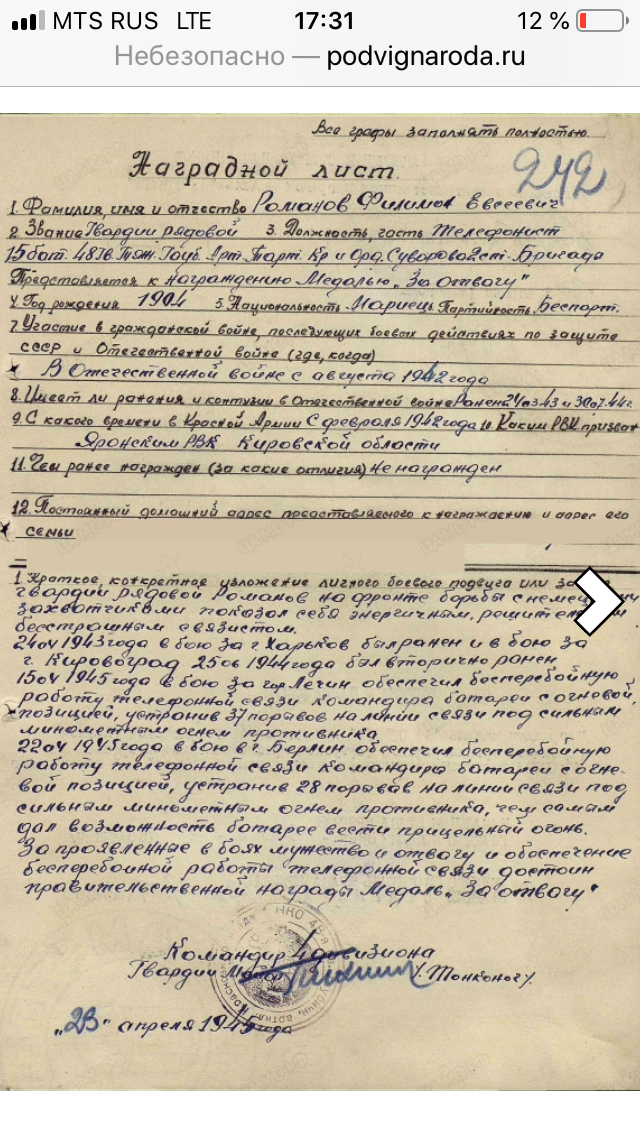 MTS RUS LTE 17:31 12 %
Небезопасно — podvignaroda.ru
Все графы заполнять полностью.
Наградной лист.
242
1. Фамилия, имя и отчество Романов Филимон Евсеевич
2. Звание Гвардии рядовой 3. Должность, часть Телефонист
15 бат. 48 Гв. Тяж. Гауб. Арт. Тарт. Кр и Орд. Суворова 2 ст. Бригада
Представляется к награждению Медалью „За отвагу"
4. Год рождения 1904 5. Национальность Мариец Партийность Беспарт.
7. Участие в гражданской войне, последующих боевых действиях по защите
СССР и Отечественной войне (где, когда)
В Отечественной войне с августа 1942 года
8. Имеет ли ранения и контузии в Отечественной войне Ранен
9. С какого времени в Красной Армии С февраля 1942 года 10. Каким РВК призван
Яранским РВК Кировской области
11. Чем ранее награжден (за какие отличия) Не награжден
12. Постоянный домашний адрес представляемого к награждению и адрес его
семьи
1. Краткое, конкретное изложение личного боевого подвига или
гвардии рядовой Романов на фронте борьбы с
захватчиками показал себя энергичным,
бесстрашным связистом.
1943 года в бою за г. Харьков был ранен и в бою за
г. Кировоград 1944 года был вторично ранен.
15 1945 года в бою за гор Лечин обеспечил бесперебойную
работу телефонной связи командира батареи с огневой,
позицией, устранив 37 порывов на линии связи под сильным
минометным огнем противника.
22 1945 года в бою в г. Берлин обеспечил бесперебойную
работу телефонной связи командира батареи с огне-
вой позицией, устранив 28 порывав на линии связи под
сильным минометным огнем противника, чем самым
дал возможность батарее вести прицельный огонь.
За проявленные в боях мужество и отвагу и обеспечение
бесперебойной работы телефонной связи достоин
правительственной награды Медаль „За отвагу"
Командир дивизиона
Гвардии Майор /Тонконог/.
„23" апреля 1945 года